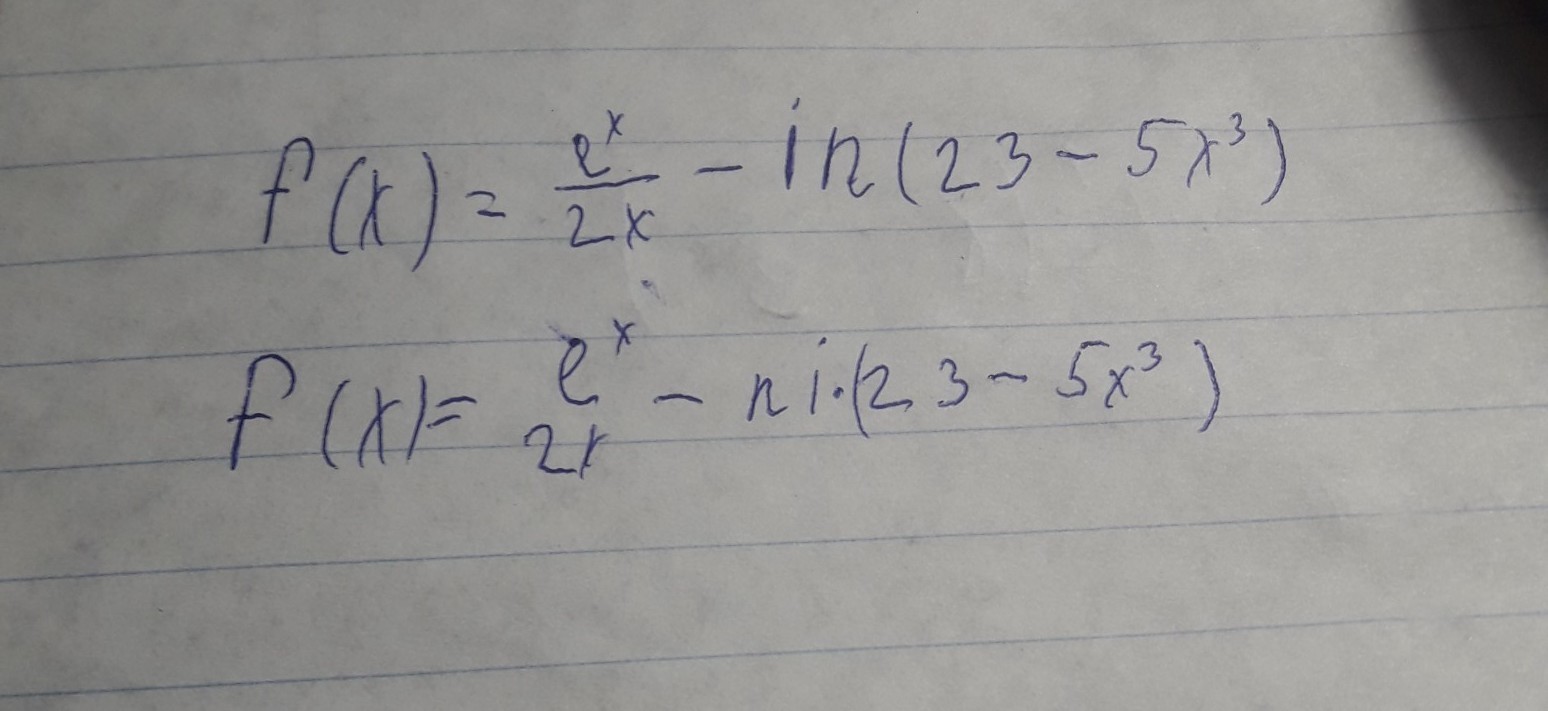 f(x) = e^x/2x - in(23 - 5x³)
f(x) = e^x/2x - ni·(23 - 5x³)